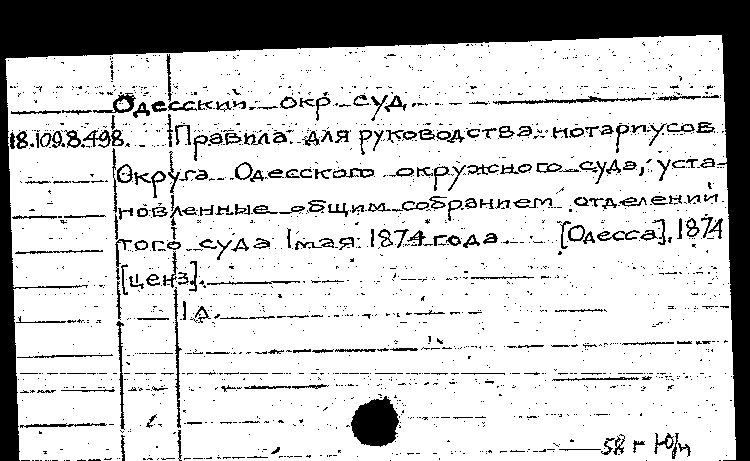 Одесский окр. суд.
18.109.8.498. Правила для руководства нотариусов
Округа Одесского окружного суда, уста-
новленные общим собранием отделений
того суда 1 мая 1874 года [Одесса], 1874
[ценз].
1 л.
58 г